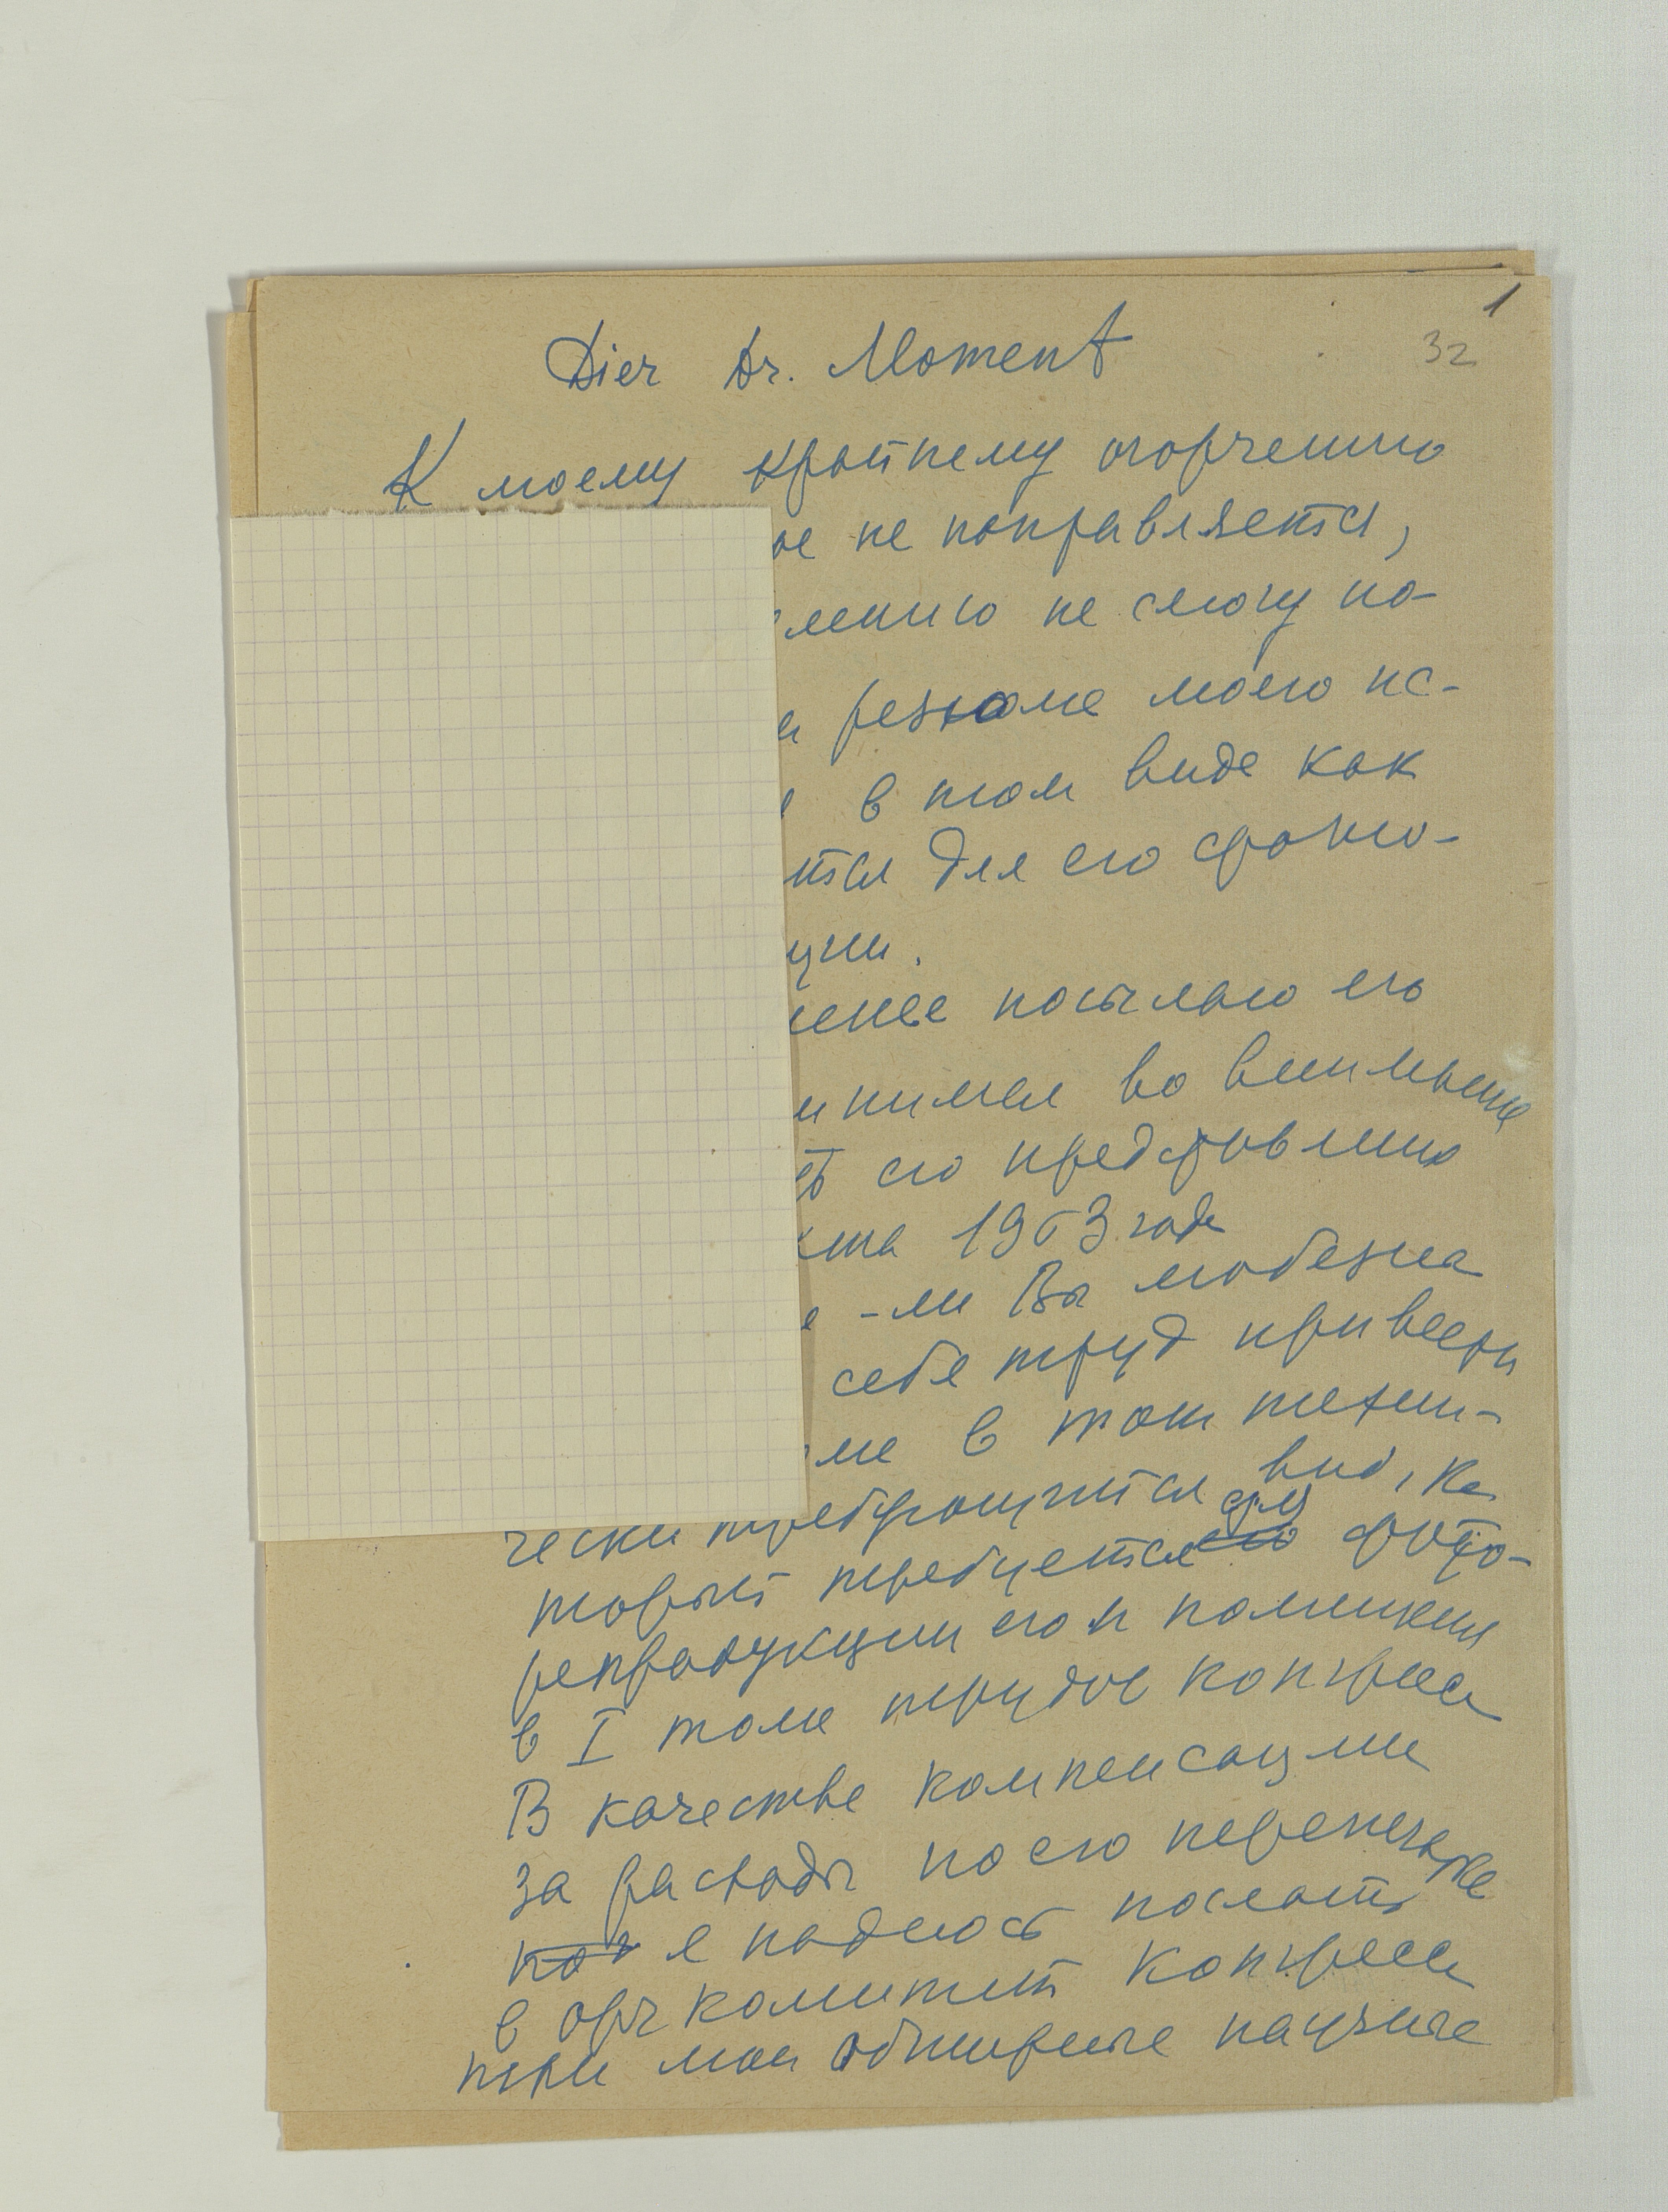 1
32
Dier Dr. Moment
К моему крайнему огорчению
ое не поправляется,
лению не смогу по-
резюме моего ис-
в том виде как
ется для его фото-
ции.
менее посылаю его
инимая во внимание
его представления
1963 года
е-ли Вы любезна
себе труд привести
ме в тот техни-
чески требующийся вид, ко
торый требуется для фото-
репродукции его и помещения
в I томе трудов конгресса
В качестве компенсации
за расходы по его перепечатке
я надеюсь послать
в орг комитет Конгресса
мои обширные научные